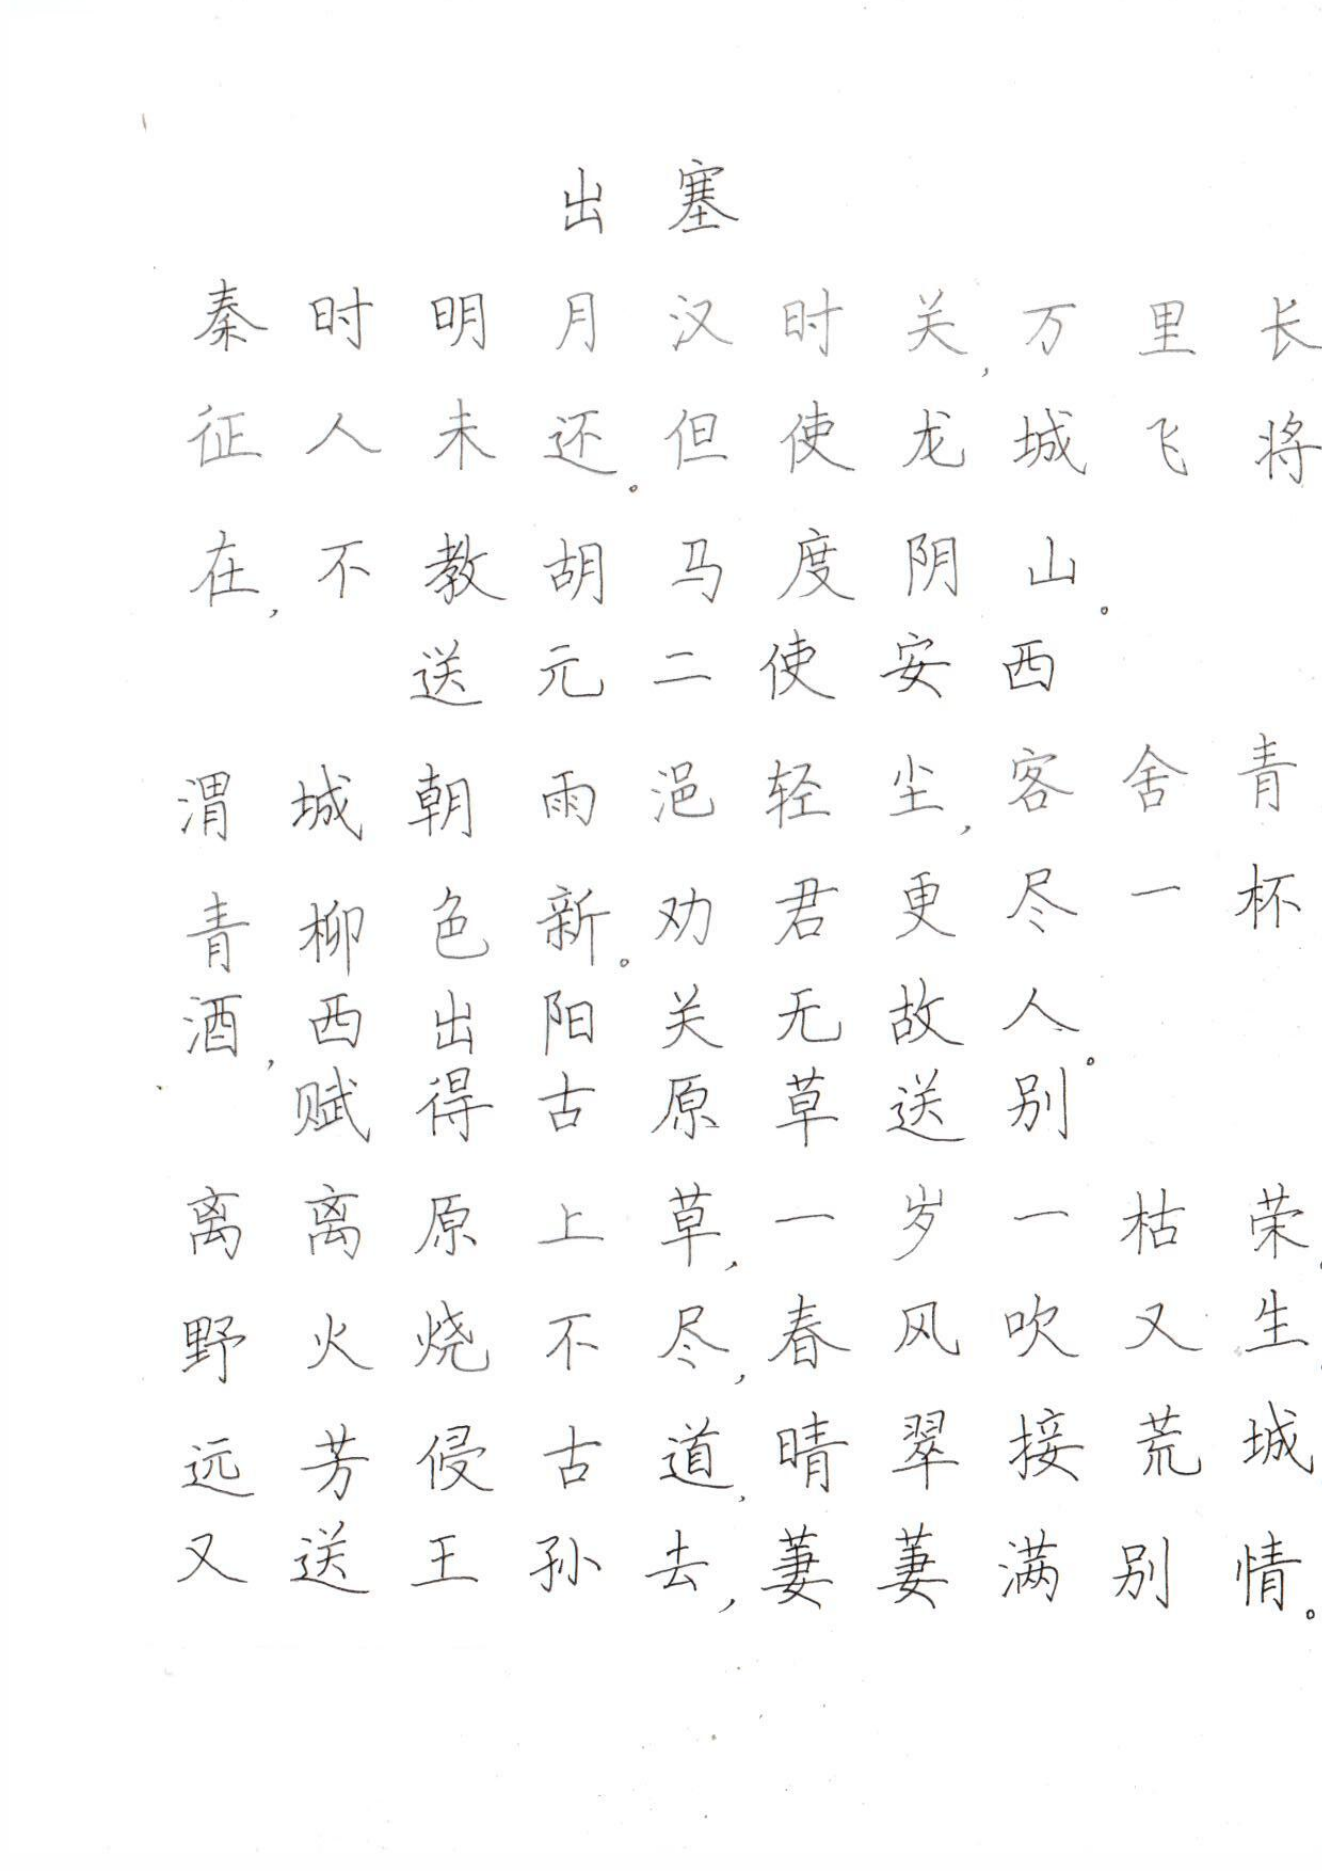 出塞
秦时明月汉时关,万里长
征人未还。但使龙城飞将
在,不教胡马度阴山。
送元二使安西
渭城朝雨浥轻尘,客舍青
青柳色新。劝君更尽一杯
酒,西出阳关无故人。
赋得古原草送别
离离原上草,一岁一枯荣。
野火烧不尽,春风吹又生.
远芳侵古道,晴翠接荒城
又送王孙去,萋萋满别情。